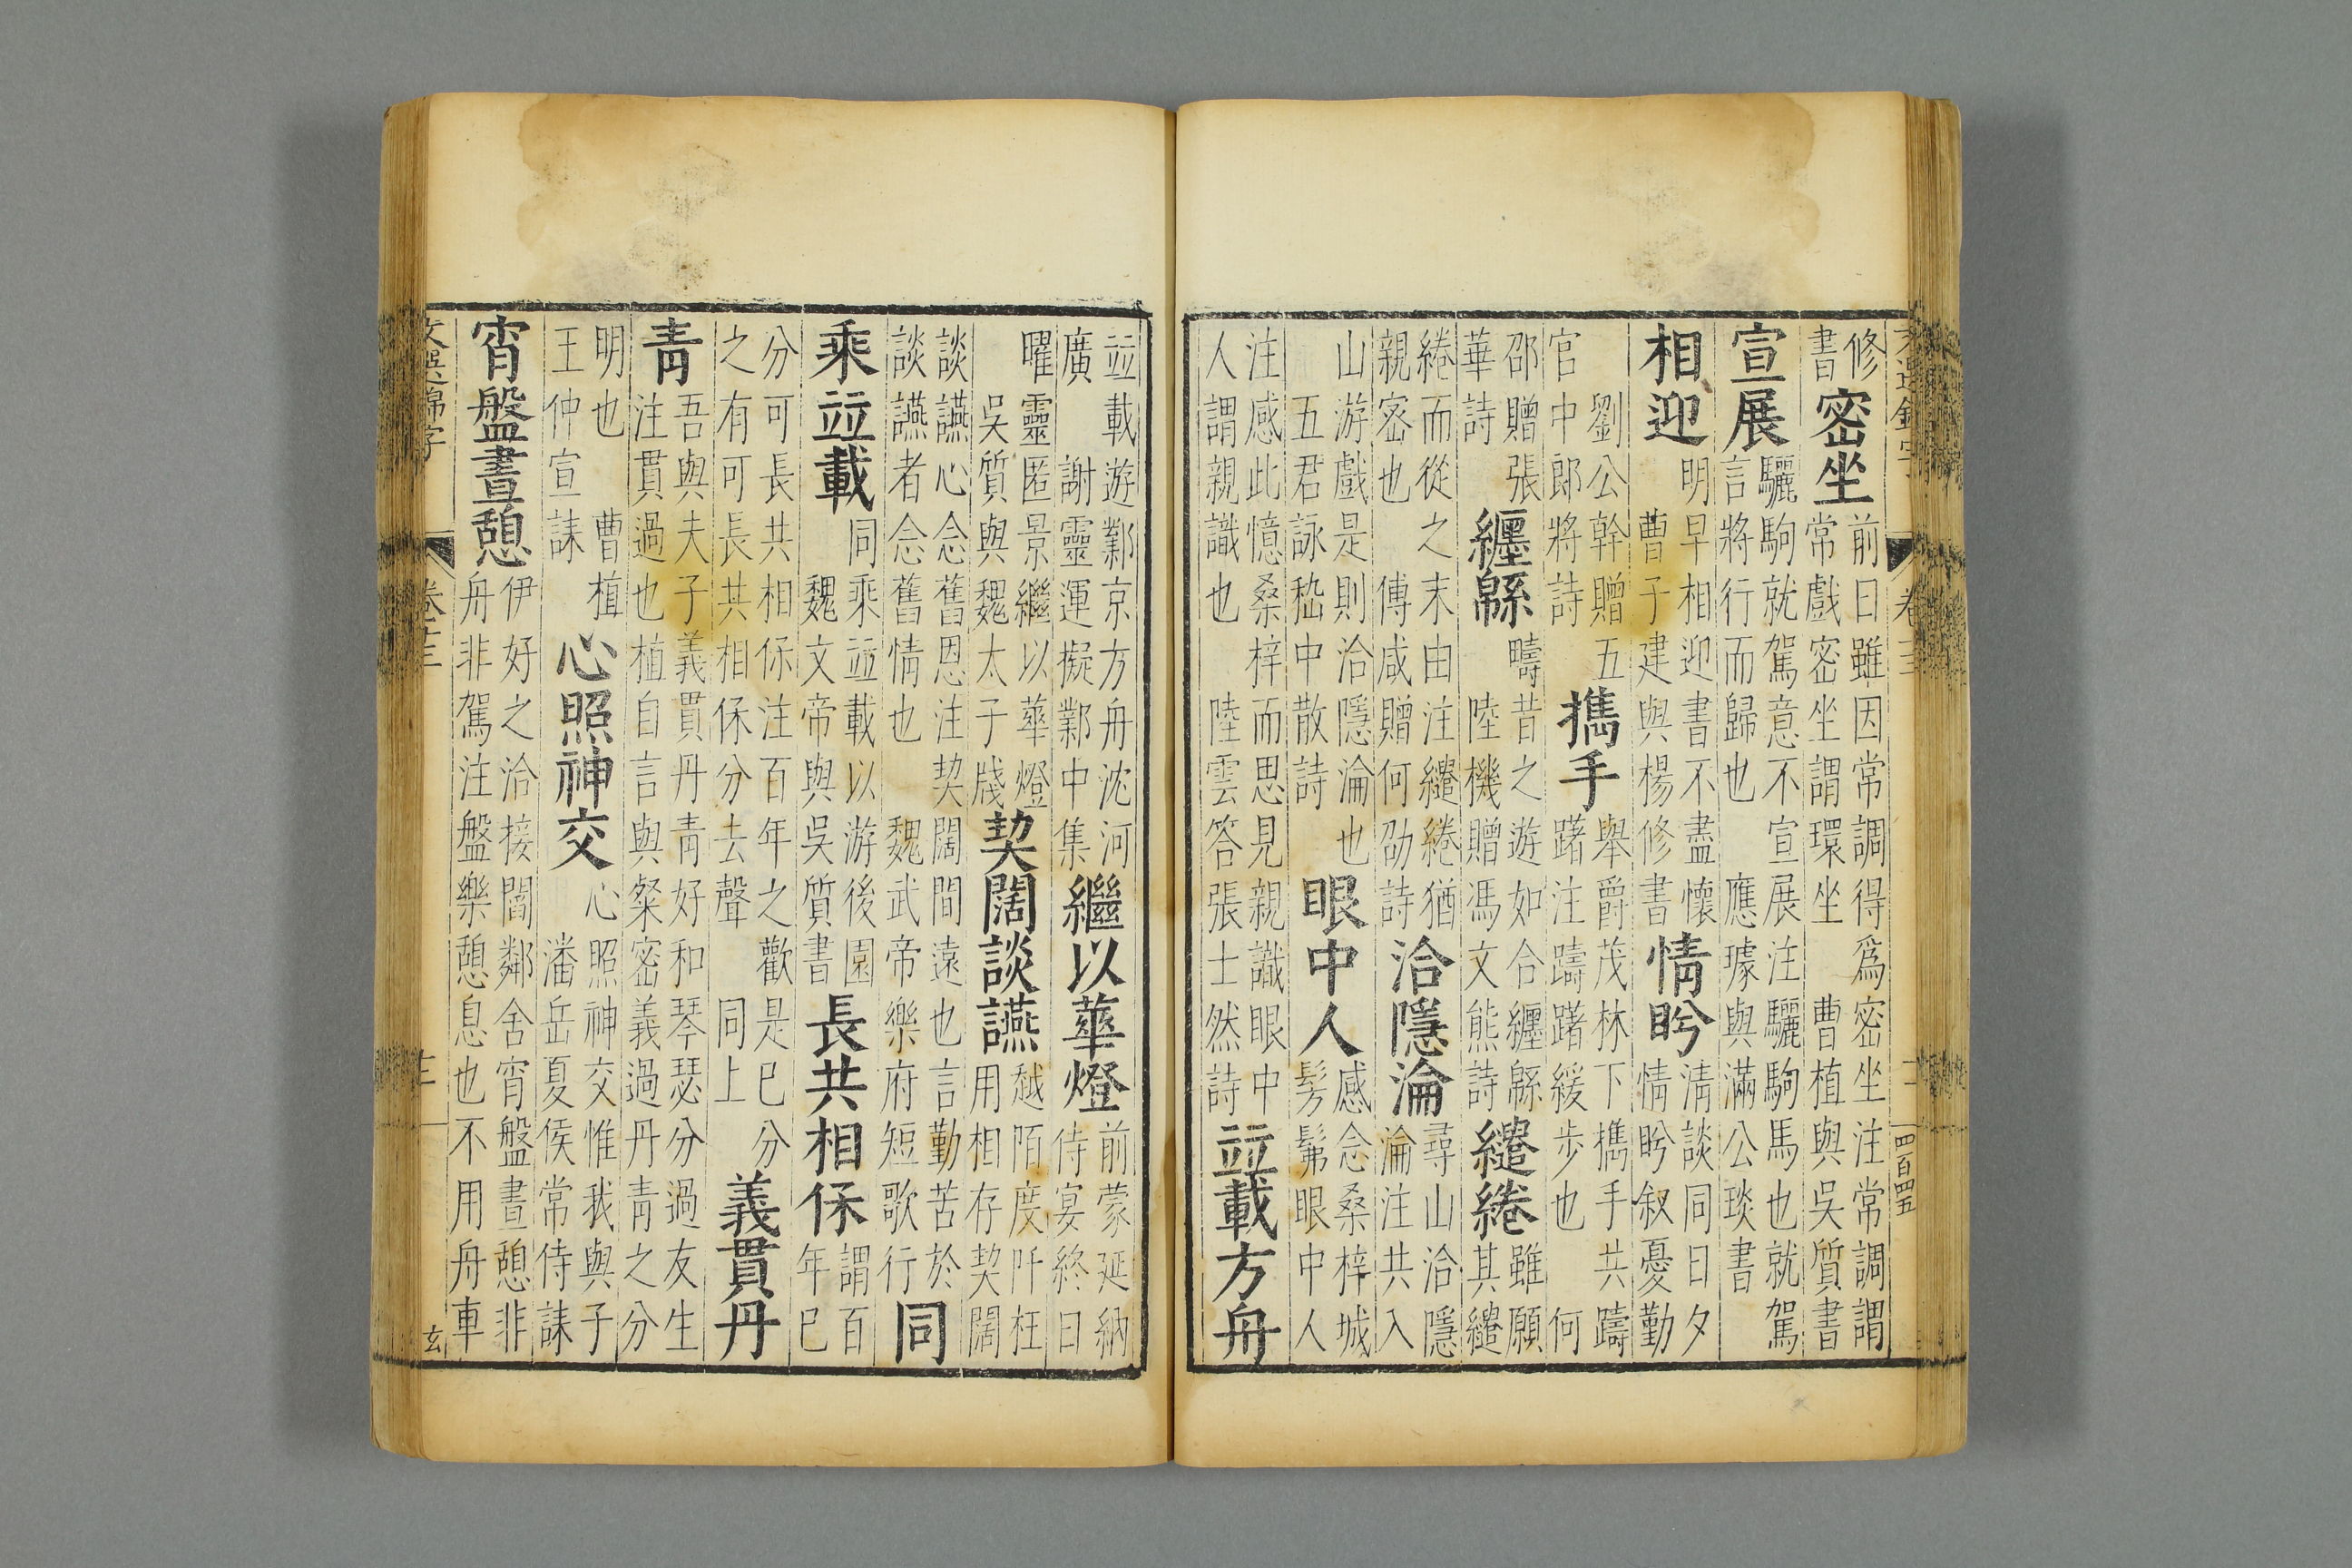 修
書
密坐
前日雖因常調得爲密坐注常調謂
常戲密坐謂環坐　曹植與吳質書
宣展
驪駒就駕意不宣展注驪駒馬也就駕
言將行而歸也　應璩與滿公琰書
相迎
明早相迎書不盡懷
曹子建與楊修書
情盻
清談同日夕
情盻叙憂勤
劉公幹贈五
官中郎將詩
攜手
舉爵茂林下攜手共躊
躇注躊躇緩步也　何
邵贈張
華詩
纏緜
疇昔之遊如合纏緜
陸機贈馮文熊詩
繾綣
雖願
其繾
綣而從之末由注繾綣猶
親密也　傅咸贈何劭詩
洽隱淪
尋山洽隱
淪注共入
山游戲是則洽隱淪也
五君詠嵇中散詩
眼中人
感念桑梓城
髣髴眼中人
注感此憶桑梓而思見親識眼中
人謂親識也　陸雲答張士然詩
竝載方舟
四百四五
竝載遊鄴京方舟沈河
廣　謝靈運擬鄴中集
繼以華燈
前蒙延納
侍宴終日
曜靈匿景繼以華燈
吳質與魏太子牋
契闊談讌
越陌度阡枉
用相存契闊
談讌心念舊恩注契闊間遠也言勤苦於
談讌者念舊情也　魏武帝樂府短歌行
同
乘竝載
同乘竝載以游後園
魏文帝與吳質書
長共相保
謂百
年已
分可長共相保注百年之歡是已分
之有可長共相保分去聲　同上
義貫丹
青
吾與夫子義貫丹青好和琴瑟分過友生
注貫過也植自言與粲密義過丹青之分
明也　曹植
王仲宣誄
心照神交
心照神交惟我與子
潘岳夏侯常侍誄
宵盤晝憩
伊好之洽接閻鄰舍宵盤晝憩非
舟非駕注盤樂憩息也不用舟車
文選錦字
卷十三
玄